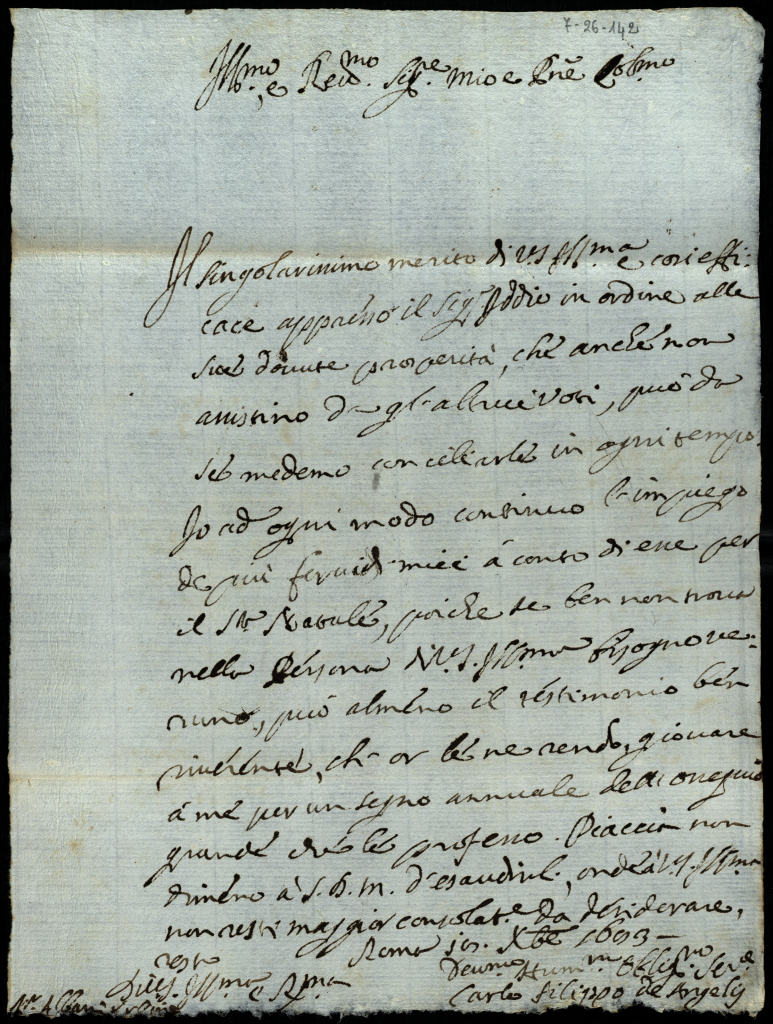 7-26-142
Ill.mo, e Reu.mo Sig.re mio e Prõe Col.mo
Il singolarissimo merito di VS Ill.ma è cosi effi:
cace appresso il Sig.r Iddio in ordine alle
sue douute prosperità, che anche non
assistino da gl'altrui Voti, può da
se medemo conciliarle in ogni tempo.
Io ad ogni modo continuo l'impiego
de più feruidi miei à conto di esse per
il S.to Natale, poiche se ben non troua
nella Persona di V.S. Ill.ma bisogno ve:
runo, può almeno il testimonio ben
riuerente, ch'or le ne rendo, giouare
à me per un segno annuale dell'ossequio
grande che le professo. Piaccia non
dimeno à S. D. M. d'esaudirl., onde à V.S. Ill.ma
non resti maggior consolat.e da desiderare,
resto Roma 10. Xbre 1693 -
Di V.S. Ill.ma e R.ma
Deuot.mo Hum.mo Oblig.mo Ser.e
Carlo Filippo de Angelis